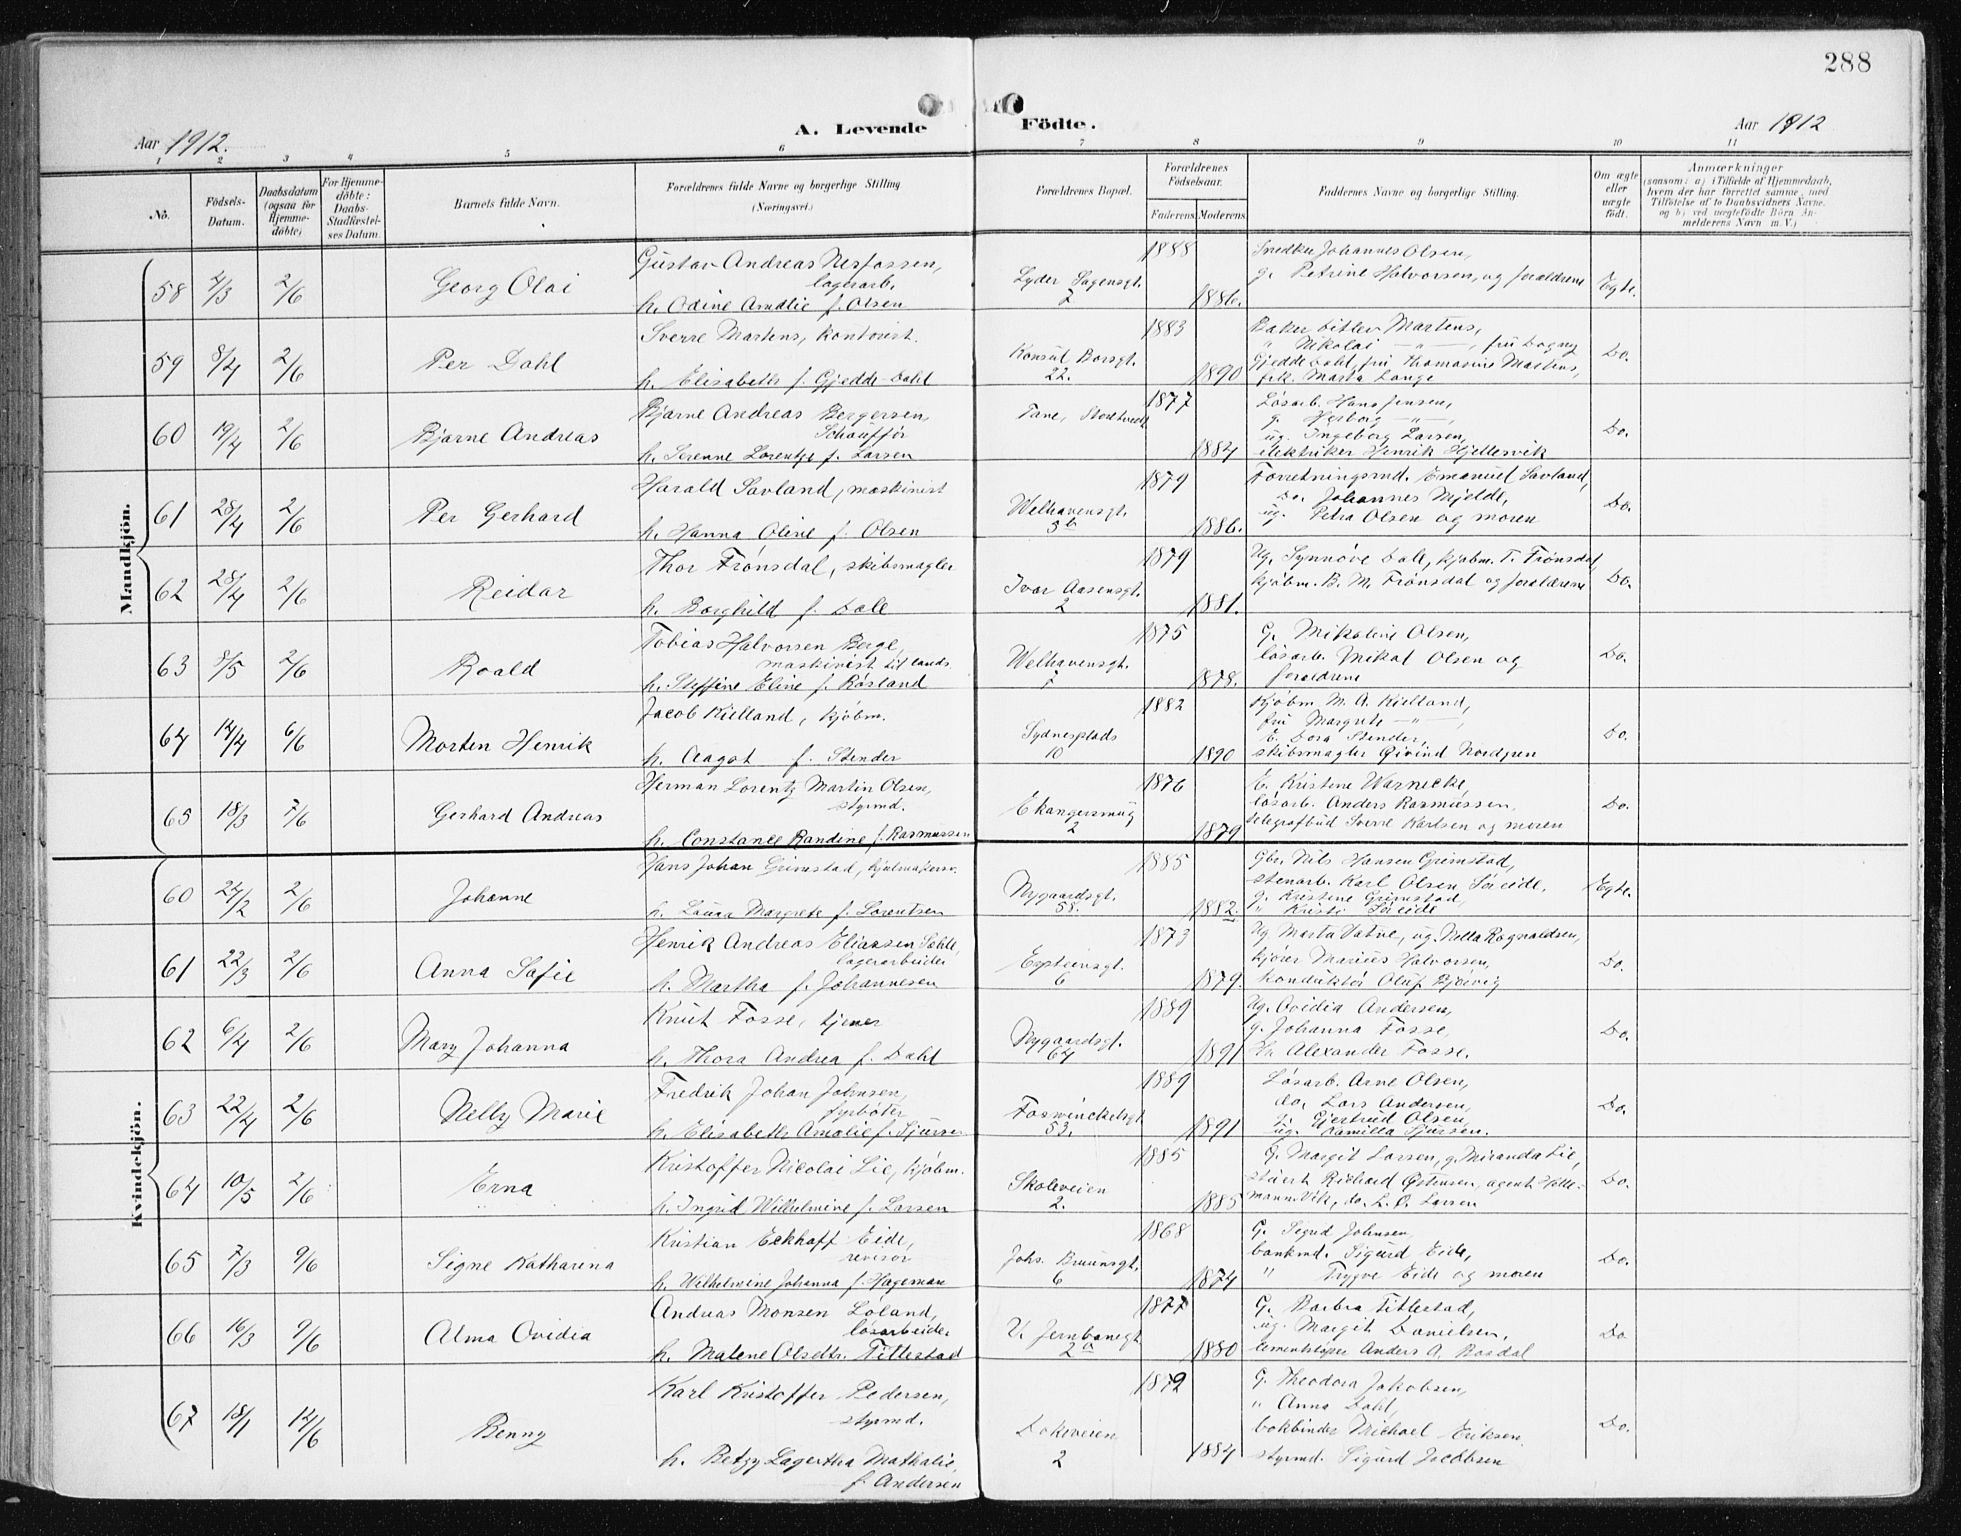 288
A. Levende Födte.
Aar 1912.
Aar 1912
1 2 3 4 5 6 7 8 9 10 11
No.
Födsels-Datum.
Daabsdatum (ogsaa for Hjemme-döbte)
For Hjemme-döbte: Daabs-Stadfæstel-ses Datum.
Barnets fulde Navn.
Forældrenes fulde Navne og borgerlige Stilling (Næringsvei.)
Forældrenes Bopæl.
Forældrenes Födselsaar.
Faderens Moderens
Faddernes Navne og borgerlige Stilling.
Om ægte eller uægte födt.
Anmærkninger
(saasom: a) i Tilfælde af Hjemmedaab, hvem der har forrettet samme, med Tilföielse af to Daabsvidners Navne, og b) ved uægtefödte Börn An-melderens Navn m. V.)
Mandkjön.
58 4/3 2/6 Georg Olai
Gustav Andreas Nesfossen, lagerarb.
h. Odine Amalie f. Olsen
Lyder Sagensgt. 7
1888 1886.
Snedker Johannes Olsen,
g. Petrine Halvorsen, og forældrene
Egte.
59 8/4 2/6 Per Dahl
Sverre Martens, kontorist.
h. Elisabeth f. Gjedde-Dahl
Konsul Borsgt. 22.
1883 1890
Baker Ditlev Martens,
" Nikolai —"—, fru Dagny
Gjedde Dahl, fru Thomasine Martens,
frk. Marta Lange
Do.
60 19/4 2/6 Bjarne Andreas
Bjarne Andreas Bergersen, Schaufför
h. Serenne Lorentze f. Larsen
Fane,
1877 1884
Løsarb. Hans Jensen,
g. Herborg —"—,
ug. Ingeborg Larsen,
elektriker Henrik Hjellesvik
Do.
61 28/4 2/6 Per Gerhard
Harald Savland, maskinist
h. Hanna Oline f. Olsen
Welhavensgt. 3b
1879 1886.
Forretningsmd. Emanuel Savland,
Do. Johannes Mjelde,
ug. Petra Olsen og moren
Do.
62 28/4 2/6 Reidar
Thor Frønsdal, skibsmægler
h. Borghild f. Dale
Ivar Aasensgt. 2
1879 1881.
Ug. Synnøve Dale, kjøbm. T. Frønsdal,
kjøbm. B. M. Frønsdal og forældrene
Do.
63 8/5 2/6 Roald
Tobias Halvorsen Berge, maskinist til lands
h. Steffine Eline f. Røsland
Welhavensgt. 7
1875 1878.
G. Mikaline Olsen,
løsarb. Mikal Olsen og
forældrene
Do.
64 14/4 6/6 Morten Henrik
Jacob Kielland, kjøbm.
h. Aagot f. Stender
Sydnesplads 10
1882 1890
Kjøbm M. A. Kielland,
fru Margrete —"—,
E. Dora Stender,
skibsmægler Øivind Nordgren
Do.
65 18/3 7/6 Gerhard Andreas
Herman Lorentz Martin Olsen, styrmd.
h. Constance Randine f. Rasmussen
Ekangersmug 2
1876 1879
E. Kristene Warnecke,
løsarb. Anders Rasmussen,
telegrafbud Sverre Karlsen og moren
Do.
Kvindekjön.
60 24/2 2/6 Johanne
Hans Johan Grimstad, hjulmakersv.
h. Laura Margrete f. Sorentsen
Nygaardsgt. 58.
1885 1882.
Gbr. Nils Hansen Grimstad,
stenarb. Karl Olsen Søreide,
g. Kristine Grimstad,
" Kristi Søreide
Egte.
61 22/3 2/6 Anna Sofie
Henrik Andreas Eliassen lagerarbeider
h. Martha f. Johannesen
Exsteinsgt. 6
1873 1879.
Ug Marta Vatne, ug. Nella Rognaldsen,
kjører Marius Halvorsen,
konduktør Oluf Bjørvig
Do.
62 6/4 2/6 Mary Johanna
Knut Fosse, tjener
h. Thora Andrea f. Dahl
Nygaardsgt. 64
1889 1891
Ug. Ovidia Andersen,
g. Johanna Fosse,
Hr. Alexander Fosse.
Do.
63 22/4 2/6 Nelly Marie
Fredrik Johan Johnsen, fyrbøter
h. Elisabeth Amalie f. Sjursen
Foswinckelsgt. 53.
1889 1891
Løsarb. Arne Olsen,
do. Lars Andersen,
g. Gjertrud Olsen,
ug. Kamilla Sjursen.
Do.
64 10/5 2/6 Erna
Kristoffer Nicolai Lie, kjøbm.
h. Ingrid Wilhelmine f. Larsen
Skoleveien 2.
1885 1885
G. Margit Larsen, g. Miranda Lie,
stuert Richard Østensen, agent Hille-
mann Vik, do. L. O. Larsen
Do.
65 7/3 9/6 Signe Katharina
Kristian Eckhoff Eide, revisor
h. Wilhelmine Johanna f. Hageman
Johs. Bruunsgt. 6
1868 1874
G. Sigrid Johnsen,
bankmd. Sigurd Eide,
" Trygve Eide og moren
Do.
66 16/3 9/6 Alma Ovidia
Andreas Monsen Løland, løsarbeider
h. Malene Olsdtr. Tittestad
V. Jernbanegt 2a
1877 1880
G. Barbra Tittestad,
ug. Margit Danielsen,
cementstøper Anders A. Rosdal
Do
67 18/1 12/6 Benny
Karl Kristoffer Pedersen, styrmd.
h. Betzy Lagertha Mathalie f. Andersen
Dokeveien 2
1872 1884
G. Theodora Jakobsen,
" Anna Dahl,
bokbinder Michael Eriksen.
styrmd. Sigurd Jacobsen
Do.